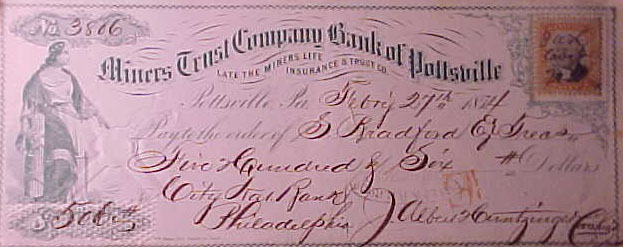 No. 3806
Miners Trust Company Bank of Pottsville
LATE THE MINERS LIFE INSURANCE & TRUST CO.
Pottsville, Pa. Febry 27th 1874
Pay to the order of S Bradford Treas
Five Hundred & Six Dollars
City Nat Bank
Philadelphia
506 Albert Huntzinger